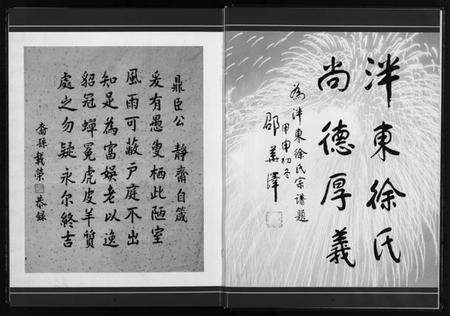 泮東徐氏
尚德厚義
為泮東徐氏宗譜題
甲申初冬
邵華澤
鼎臣公 靜齋自箴
爰有愚叟栖此陋室
風雨可蔽戶庭不出
知足為富娛老以逸
貂冠蟬冕虎皮羊質
處之勿疑永尔終吉
裔孫載榮 恭錄